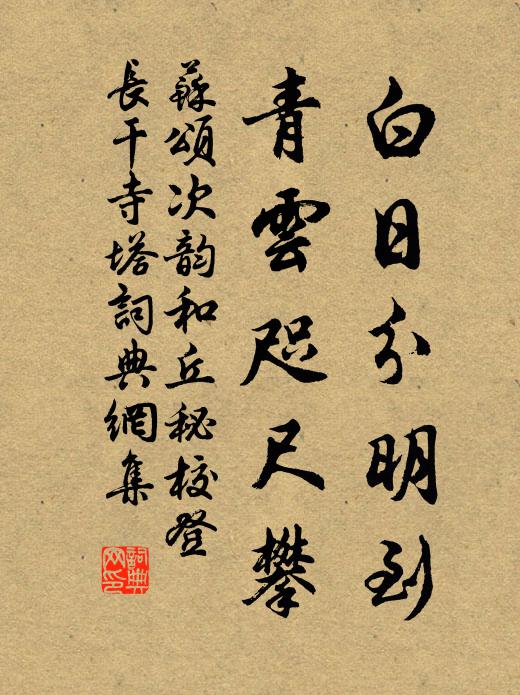 白日分明到
青雲咫尺攀
蘇頌次韵和丘秘校登
長干寺塔詞典網集
詞典
网印